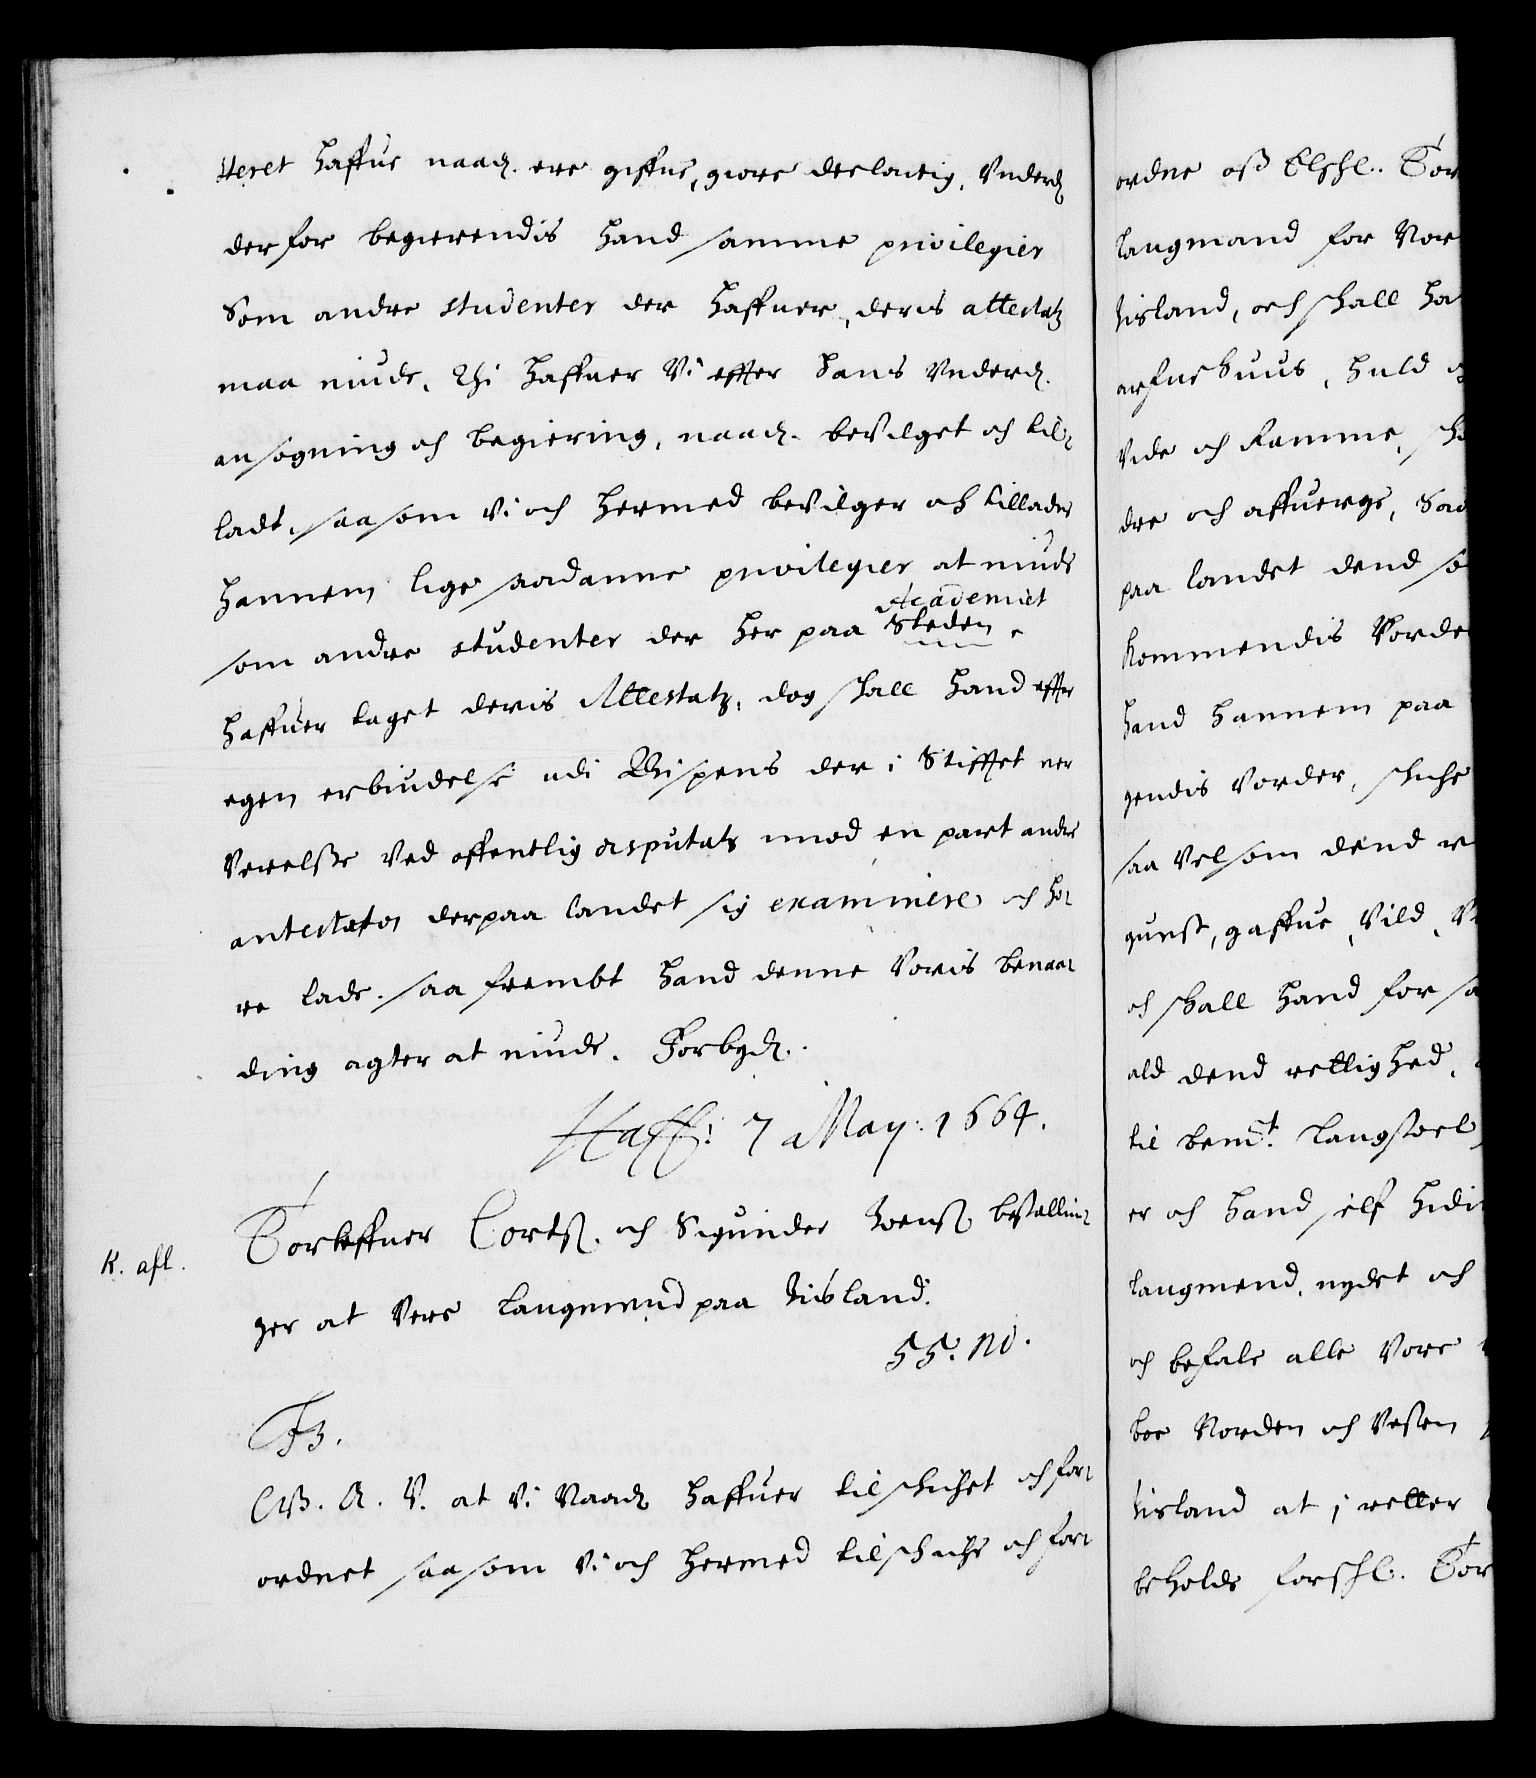 teret haffue naadg. ere giffne, giøre deelactig, Vnderdg
derfor begierendis hand samme privilegier
Som andre studenter der haffuer, deris attestatz
maa niude, Thi haffuer Vi effter hans Vnderdg.
ansøgning och begiering, naadg. bevilget och til¬
ladt, saasom Vi och hermed bevilger och tillader
hannem lige saadanne privilegier at niude
Academiet
som andre studenter der her paa Steden
haffuer taget deris Attestatz, dog skall hand effter
egen erbiudelse udi Bispens der i Stifftet ner
Verelse Ved offentlig disputats imod en part andre
antestatos derpaa landet sig examinere och hø¬
re lade. saa frembt hand denne Voris benaa¬
ding agter at niude. Forbydg.
Haffn: 7 May: 1664.
K. afl.
Torleffuer Cortß. och Sigurder Joenß. bestallin¬
ger at Vere langmend paa Iisland.
55. No.
F3.
G. A. V. at Vi Naadg haffuer tilschichet och for¬
ordnet saasom Vi och hermed tilschicke och for¬
ordne oß Elschl. Tor
laugmand for Nor
Iisland, och skall ha
arfueHuus, huld o
Vide och Ramme, sk
dre och affuerge, Saa
paa landet dend so
kommendis Vorde
hand hannem paa
gendis Vorder, skicke
saa Velsom dend r
gunst, gaffue, Vild, V
och skall hand for sa
ald dend rettighed,
til bemt. langstoel
er och hand self hidi
laugmend, nydet och
och befale alle Vore
boe Norden och Vesten
Iisland at i retter
beholde forschl. Tor